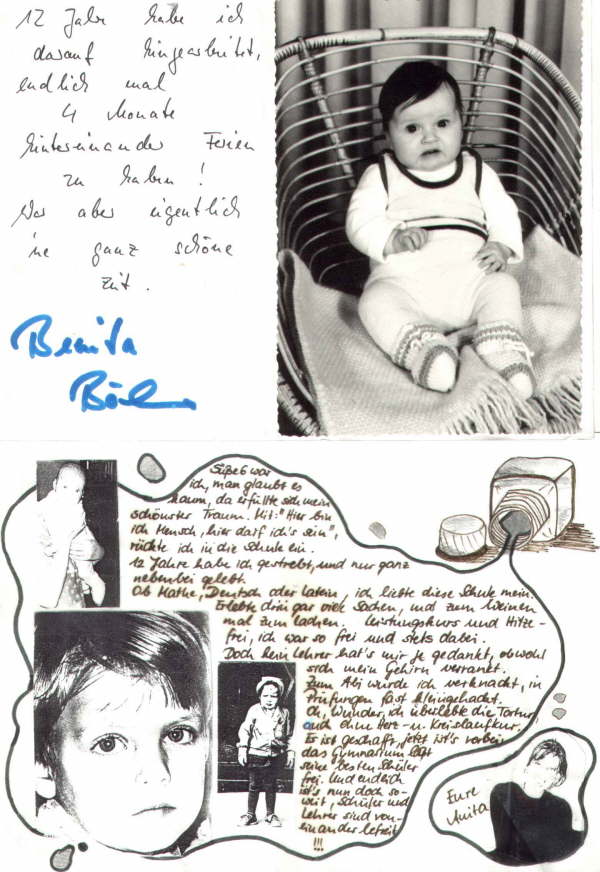 12 Jahre habe ich
darauf hingearbeitet,
endlich mal
4 Monate
hintereinander Ferien
zu haben!
War aber eigentlich
ne ganz schöne
Zeit.
Benita
Süße 6 war
ich, man glaubt es
kaum, da erfüllte sich mein
schönster Traum. Mit: "Hier bin
ich Mensch, hier darf ich's sein",
rückte ich in die Schule ein.
12 Jahre habe ich gestrebt, und nur ganz
nebenbei gelebt.
Ob Mathe, Deutsch oder Latein, ich liebte diese Schule mein.
Erlebte drin gar viele Sachen, mal zum Weinen
mal zum Lachen. Leistungskurs und Hitze-
frei, ich war so frei und stets dabei.
Doch kein Lehrer hat's mir je gedankt, obwohl
sich mein Gehirn verrankt.
Zum Abi wurde ich verknackt, in
Prüfungen fast kleingehackt.
Oh, Wunder, ich überlebte die Tortur,
auch ohne Herz- u. Kreislaufkur.
Es ist geschafft, jetzt ist's vorbei
das Gymnasium läßt
seine besten Schüler
frei. Und endlich
ist's nun doch so-
weit, Schüler und
Lehrer sind von-
einander befreit
!!!
Eure
Anita